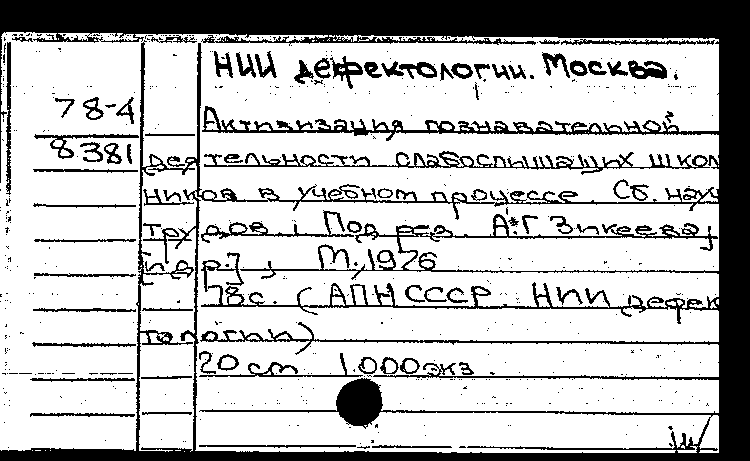 НИИ дефектологии. Москва.
78-4
Активизация познавательной
8381
деятельности слабослышащих школ
ников в учебном процессе. Сб. науч
трудов : Под ред. А.Г. Зикеева,
[и др.] ; М., 1976
78 с. (АПН СССР НИИ дефек
тологии)
20 cm 1.000 экз.